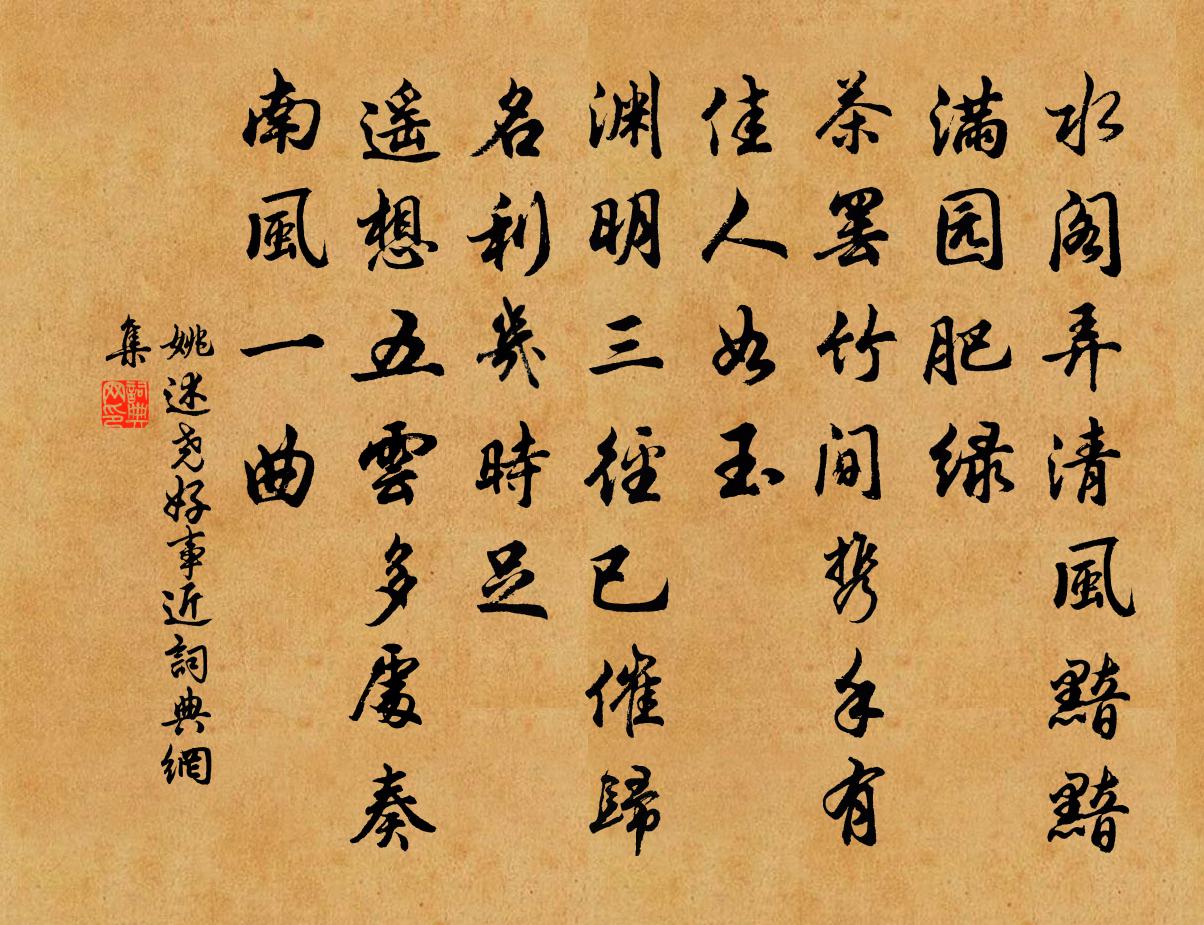 水阁弄清風黯黯
满园肥绿
茶罢竹间携手有
佳人如玉
渊明三徑已催歸
名利幾時足
遥想五雲多處奏
南風一曲
姚述尧好事近詞典網
集
詞典网印